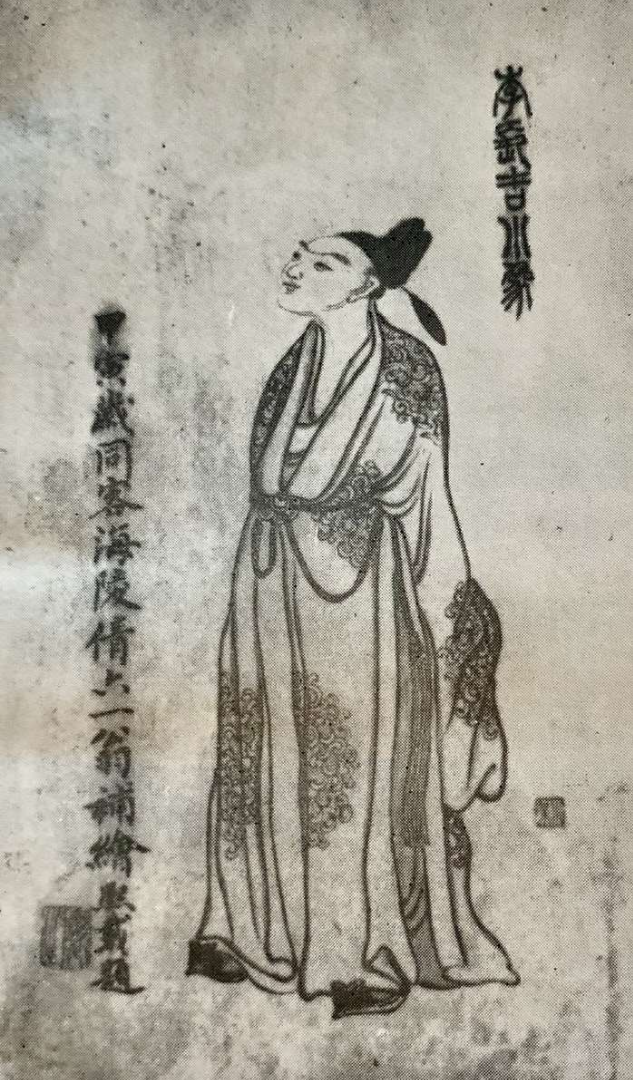 李吉川象
甲寅歲同客海陵倩六一翁補繪熙載題